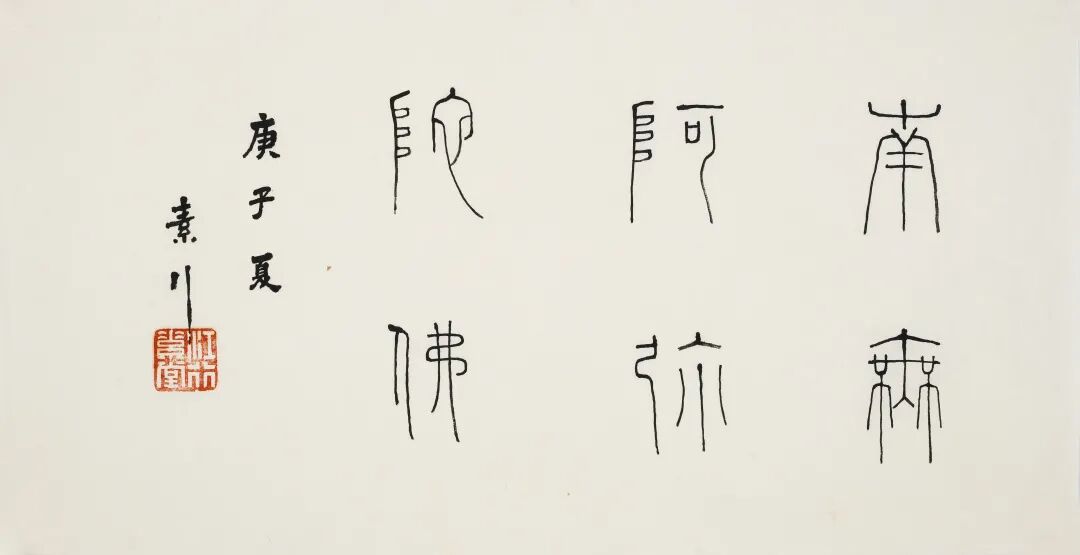 南無
阿弥
陀佛
庚子夏
素川